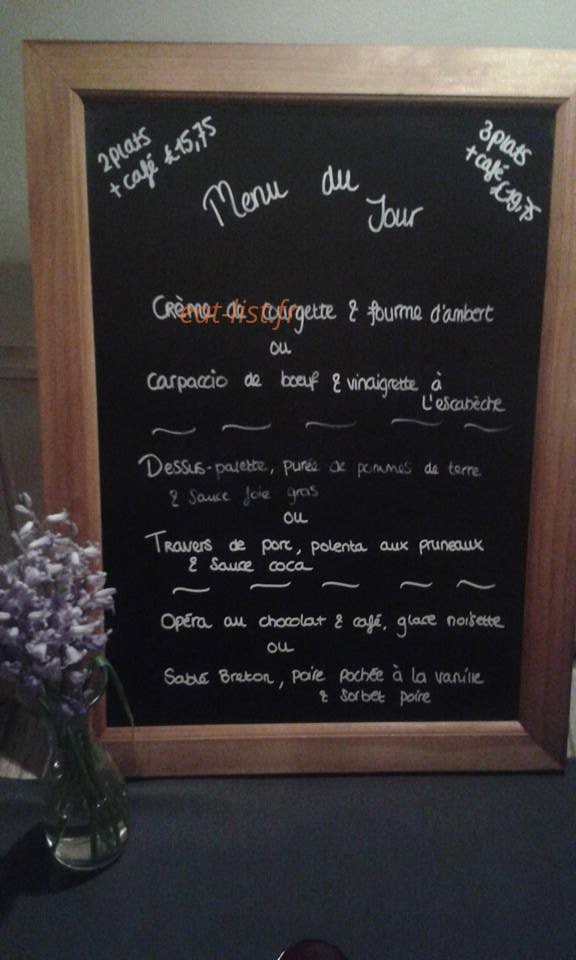 2 plats
+ café £15,75
3 plats
+ café
£19,75
Menu du
Jour
Crème de courgette & fourme d'ambert
eat-list.fr
ou
Carpaccio de boeuf & vinaigrette à
l'escabèche
Dessus-palette, purée de pommes de terre
& sauce foie gras
ou
Travers de porc, polenta aux pruneaux
& sauce coca
Opéra au chocolat & café, glace noisette
ou
Sablé Breton, poire pochée à la vanille
& sorbet poire